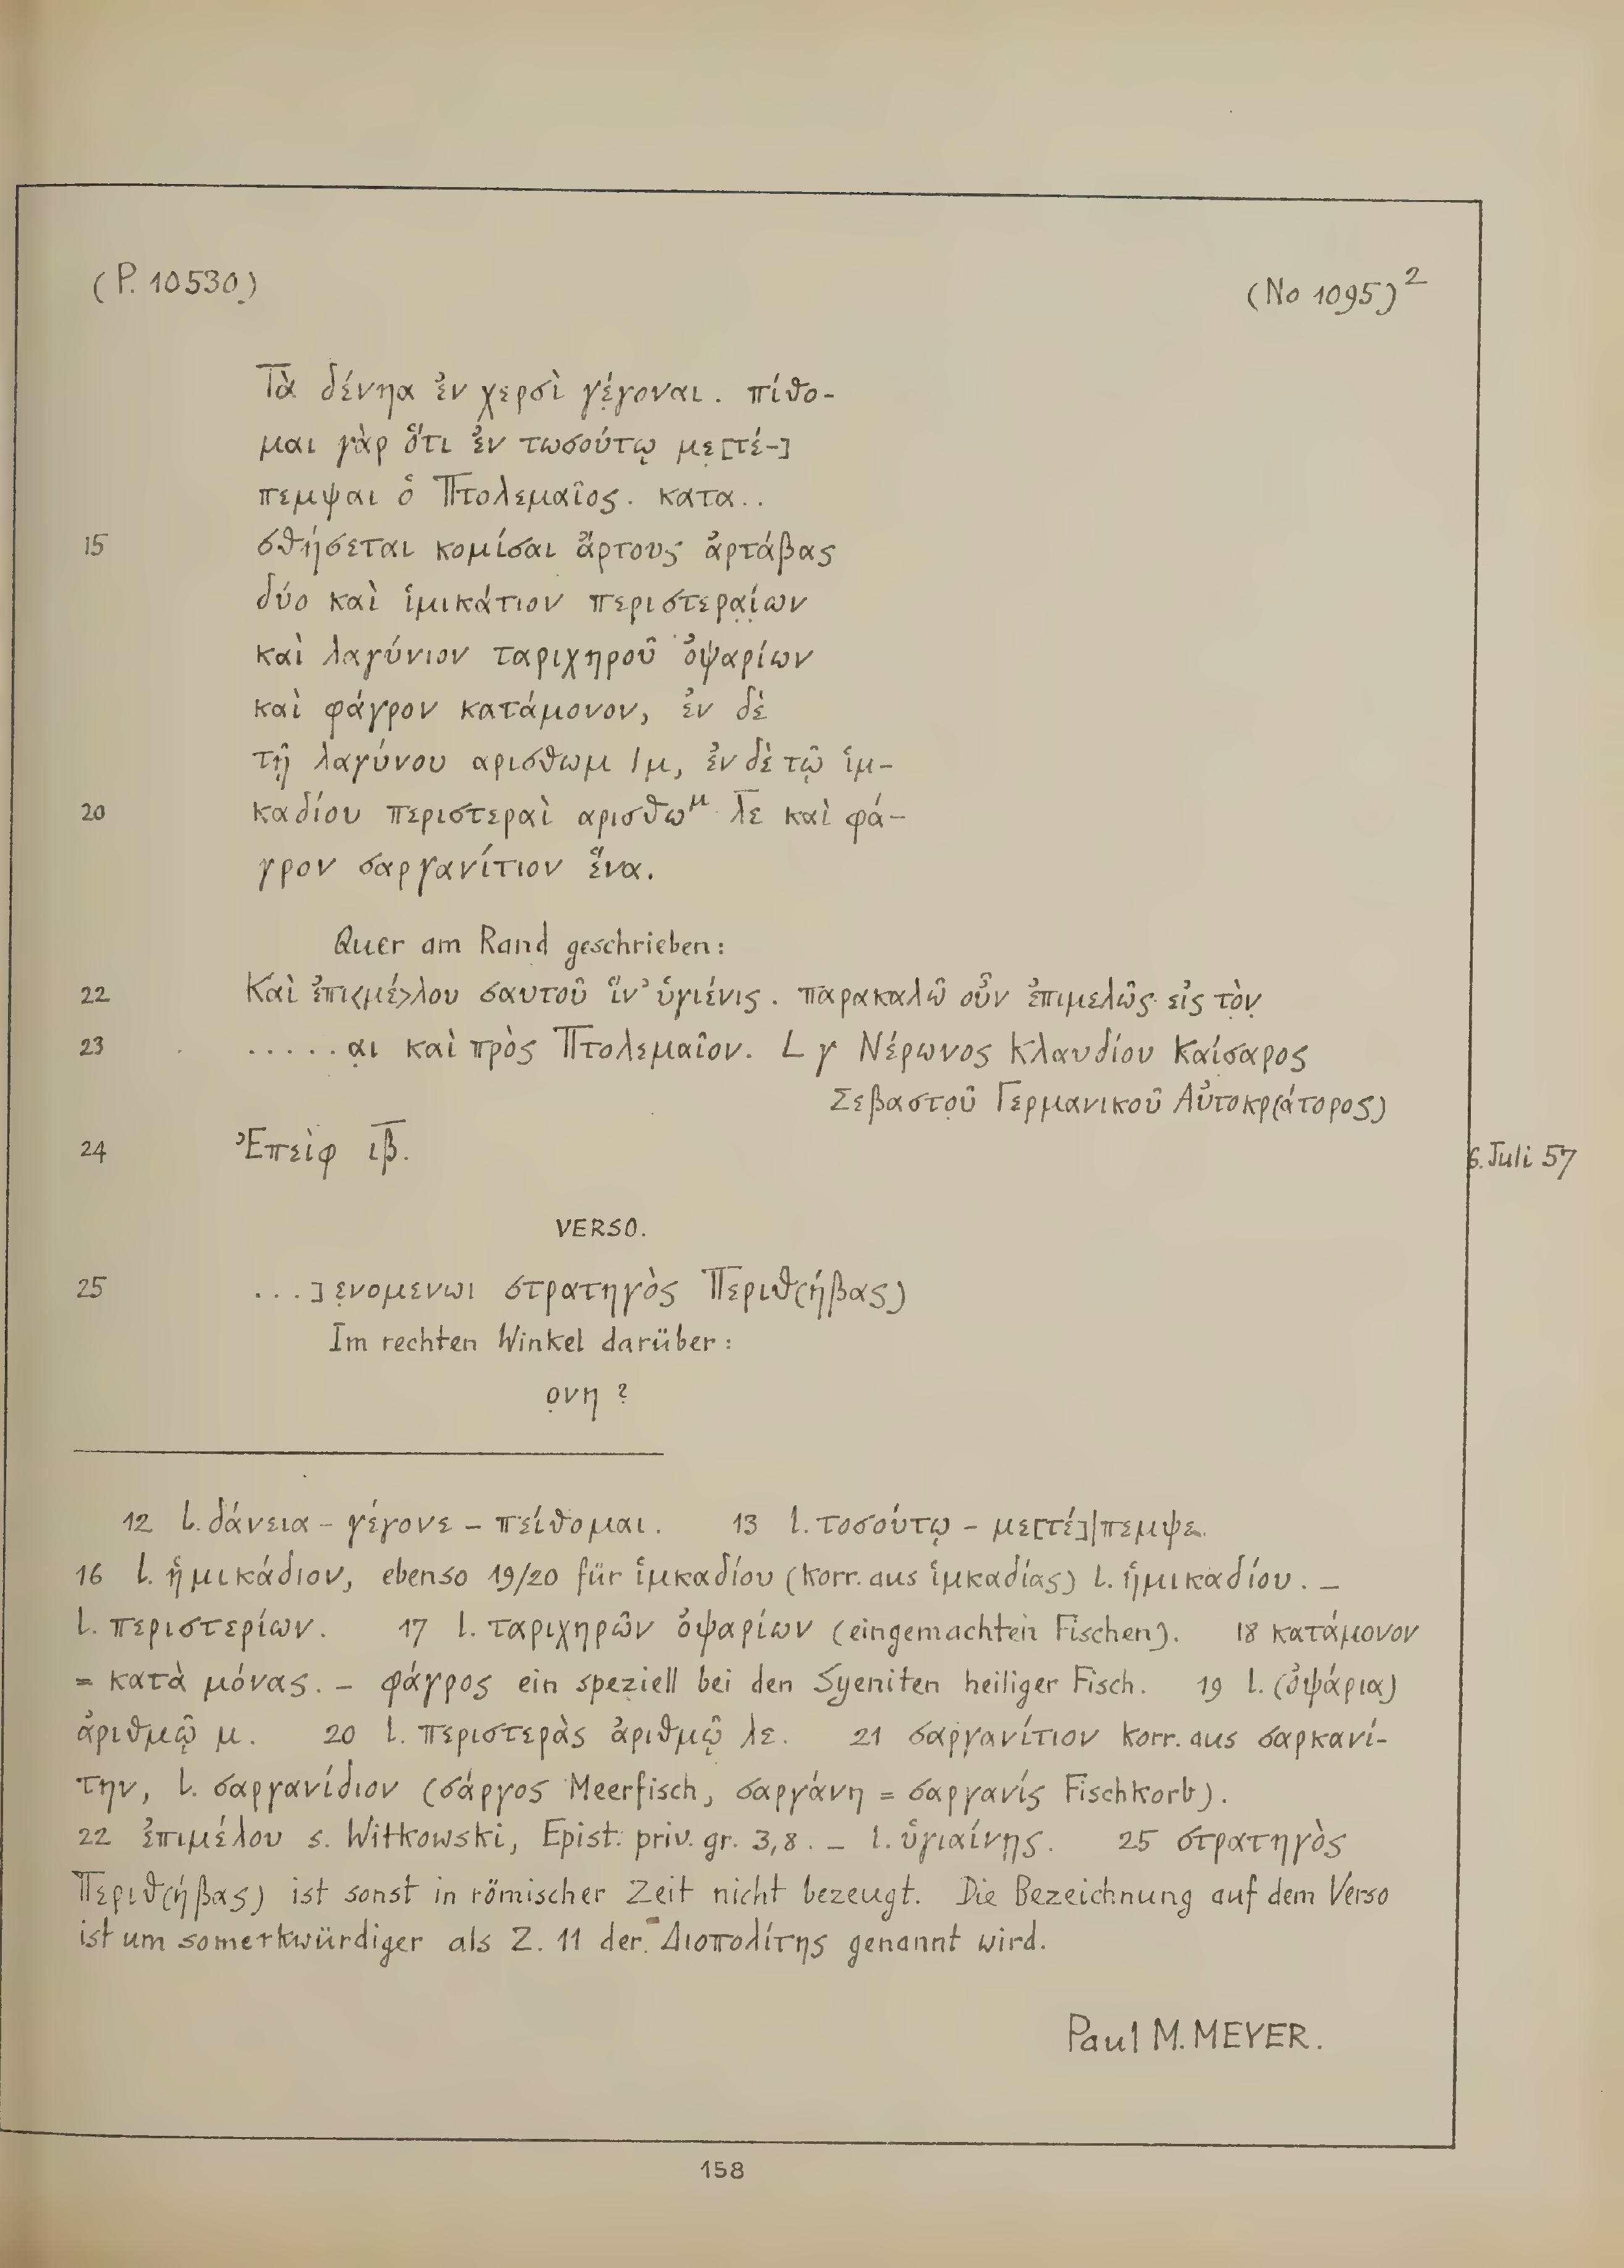 (P. 10530)
(No 1095)²
Τὰ δένηα ἐν χερσὶ γέγοναι. πίθο-
μαι γὰρ ὅτι ἐν τωσούτῳ με[τέ-]
πεμψαι ὁ Πτολεμαῖος. κατα..
15 σθήσεται κομίσαι ἄρτους ἀρτάβας
δύο καὶ ἱμικάτιον περιστερα̣ί̣ων
καὶ λαγύνιον ταριχηροῦ ὀψαρίων
καὶ φάγρον κατάμονον, ἐν δὲ
τῇ λαγύνου αρισθωμ /μ, ἐν δὲ τῷ ἱμ-
20 καδίου περιστεραὶ αρισθωᵘ λ̅ε̅ καὶ φά-
γρον σαργανίτιον ἕνα.
Quer am Rand geschrieben:
22 Καὶ ἐπι<μέ>λου σαυτοῦ ἵν' ὑγιένις. παρακαλῶ οὖν ἐπιμελῶς εἰς τὸν̣
23 .....α̣ι καὶ πρὸς Πτολεμαῖον. L γ Νέρωνος Κλαυδίου Καίσαρος
Σεβαστοῦ Γερμανικοῦ Αὐτοκρ(άτορος)
24 Ἐπεὶφ ιβ̅.
6. Juli 57
VERSO.
25 ...]ε̣νομενωι στρατηγὸς Περιθ(ήβας)
Im rechten Winkel darüber:
ο̣νη ?
12 l. δάνεια - γέγονε - πείθομαι. 13 l. τοσούτῳ - με[τέ]|πεμψε.
16 l. ἡμικάδιον, ebenso 19/20 für ἱμκαδίου (korr. aus ἱμκαδίας) l. ἡμικαδίου. –
l. περιστερίων. 17 l. ταριχηρῶν ὀψαρίων (eingemachten Fischen). 18 κατάμονον
= κατὰ μόνας. – φάγρος ein speziell bei den Syeniten heiliger Fisch. 19 l. (ὀψάρια)
ἀριθμῷ μ. 20 l. περιστερὰς ἀριθμῷ λε. 21 σαργανίτιον korr. aus σαρκανί-
την, l. σαργανίδιον (σάργος Meerfisch, σαργάνη = σαργανίς Fischkorb).
22 ἐπιμέλου s. Witkowski, Epist. priv. gr. 3,8. – l. ὑγιαίνῃς. 25 στρατηγὸς
Περιθ(ήβας) ist sonst in römischer Zeit nicht bezeugt. Die Bezeichnung auf dem Verso
ist um so merkwürdiger als Z. 11 der Διοπολίτης genannt wird.
Paul M. MEYER.
158